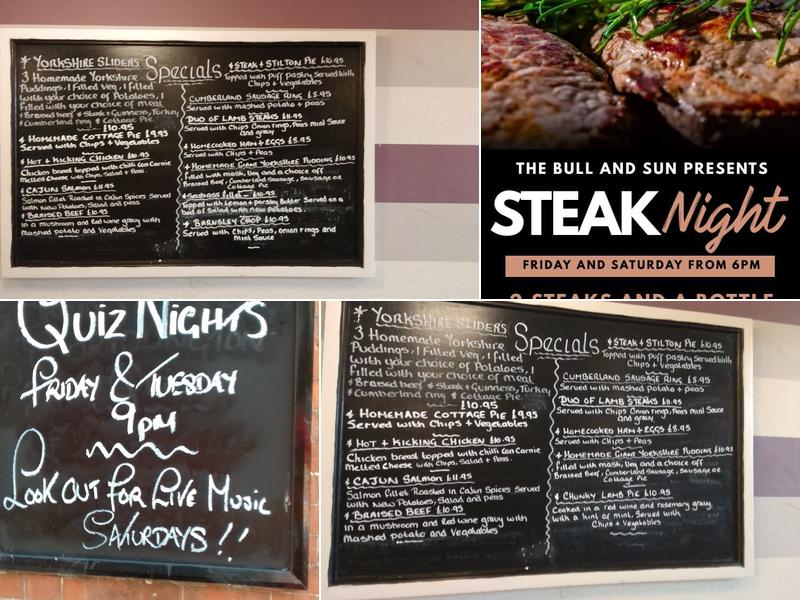 * YORKSHIRE SLIDERS
3 Homemade Yorkshire
Puddings, 1 Filled Veg, 1 filled
with your choice of Potatoes, 1
Filled with your choice of meal
* Braised beef * Steak + Guinness, Turkey
* Cumberland ring * Cottage Pie
£10.95
* HOMEMADE COTTAGE PIE £9.95
Served with Chips + Vegetables
* HOT + KICKING CHICKEN £10.95
Chicken breast topped with chilli Con Carnie
Melted Cheese with Chips, Salad + Peas.
* CAJUN SALMON £11.95
Salmon Fillet Roasted in Cajun Spices Served
with New Potatoes, Salad and peas
* BRAISED BEEF £10.95
in a mushroom and Red wine gravy with
Mashed potato and Vegetables
Specials
* STEAK + STILTON PIE £10.95
Topped with Puff pastry Served with
Chips + Vegetables
CUMBERLAND SAUSAGE RING £5.95
Served with mashed potato + peas
DUO OF LAMB STEAKS £11.95
Served with Chips Onion rings, Peas Mint Sauce
and gravy
* HOMECOOKED HAM + EGGS £8.95
Served with Chips + Peas
* HOMEMADE GIANT YORKSHIRE PUDDING £10.95
Filled with mash, Veg and a choice off
Braised Beef, Cumberland Sausage, Sausage or
Cottage Pie
* Seabass fillet - £10.95
Topped with Lemon + parsley Butter Served on a
bed of Salad with new Potatoes.
* BARNSLEY CHOP £10.95
Served with Chips, Peas, onion rings and
Mint Sauce
THE BULL AND SUN PRESENTS
STEAK Night
FRIDAY AND SATURDAY FROM 6PM
2 STEAKS AND A BOTTLE
QUIZ NIGHTS
FRIDAY & TUESDAY
9pm
LOOK OUT FOR LIVE MUSIC
SATURDAYS !!
* YORKSHIRE SLIDERS
3 Homemade Yorkshire
Puddings, 1 Filled Veg, 1 filled
with your choice of Potatoes, 1
Filled with your choice of meal
* Braised beef * Steak + Guinness, Turkey
* Cumberland ring * Cottage Pie
£10.95
* HOMEMADE COTTAGE PIE £9.95
Served with Chips + Vegetables
* HOT + KICKING CHICKEN £10.95
Chicken breast topped with chilli Con Carnie
Melted Cheese with Chips, Salad + Peas.
* CAJUN SALMON £11.95
Salmon Fillet Roasted in Cajun Spices Served
with New Potatoes, Salad and peas
* BRAISED BEEF £10.95
in a mushroom and Red wine gravy with
Mashed potato and Vegetables
Specials
* STEAK + STILTON PIE £10.95
Topped with Puff pastry Served with
Chips + Vegetables
CUMBERLAND SAUSAGE RING £5.95
Served with mashed potato + peas
DUO OF LAMB STEAKS £11.95
Served with Chips Onion rings, Peas Mint Sauce
and gravy
* HOMECOOKED HAM + EGGS £8.95
Served with Chips + Peas
* HOMEMADE GIANT YORKSHIRE PUDDING £10.95
Filled with mash, Veg and a choice off
Braised Beef, Cumberland Sausage, Sausage or
Cottage Pie
* CHUNKY LAMB PIE £10.95
Cooked in a red wine and rosemary gravy
with a hint of mint, Served with
Chips + Vegetables